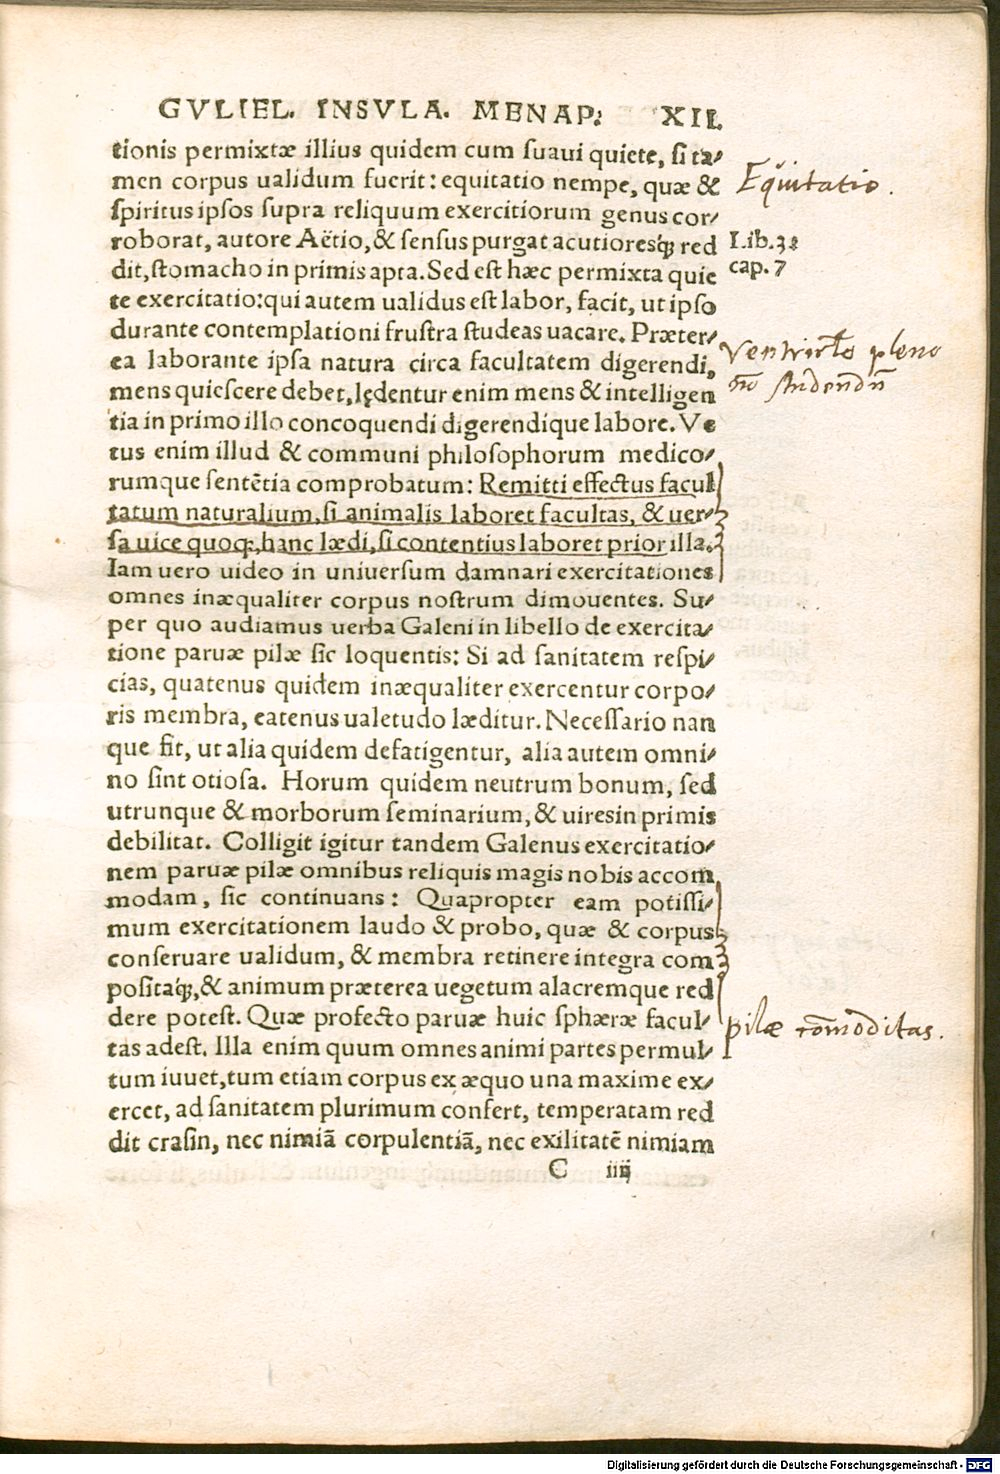 GVLIEL. INSVLA. MENAP: XII.
tionis permixtæ illius quidem cum ſuaui quiete, ſi ta⸗
men corpus ualidum fuerit: equitatio nempe, quæ &
ſpiritus ipſos ſupra reliquum exercitiorum genus cor⸗
roborat, autore Aëtio, & ſenſus purgat acutioresq́; red
dit, ſtomacho in primis apta. Sed eſt hæc permixta quie
te exercitatio: qui autem ualidus eſt labor, facit, ut ipſo
durante contemplationi fruſtra ſtudeas uacare. Præter⸗
ea laborante ipſa natura circa facultatem digerendi,
mens quieſcere debet, lędentur enim mens & intelligen
tia in primo illo concoquendi digerendique labore. Ve
tus enim illud & communi philoſophorum medico⸗
rumque ſentẽtia comprobatum: Remitti effectus facul
tatum naturalium, ſi animalis laboret facultas, & uer⸗
ſa uice quoq;, hanc lædi, ſi contentius laboret prior illa.
Iam uero uideo in uniuerſum damnari exercitationes
omnes inæqualiter corpus noſtrum dimouentes. Su⸗
per quo audiamus uerba Galeni in libello de exercita⸗
tione paruæ pilæ ſic loquentis: Si ad ſanitatem reſpi⸗
cias, quatenus quidem inæqualiter exercentur corpo⸗
ris membra, eatenus ualetudo læditur. Neceſſario nan
que fit, ut alia quidem defatigentur, alia autem omni⸗
no ſint otioſa. Horum quidem neutrum bonum, ſed
utrunque & morborum ſeminarium, & uires in primis
debilitat. Colligit igitur tandem Galenus exercitatio⸗
nem paruæ pilæ omnibus reliquis magis nobis accom
modam, ſic continuans: Quapropter eam potiſſi⸗
mum exercitationem laudo & probo, quæ & corpus
conſeruare ualidum, & membra retinere integra com
poſitaq́;, & animum præterea uegetum alacremque red
dere poteſt. Quæ profecto paruæ huic ſphæræ facul⸗
tas adeſt. Illa enim quum omnes animi partes permul⸗
tum iuuet, tum etiam corpus ex æquo una maxime ex⸗
ercet, ad ſanitatem plurimum confert, temperatam red
dit craſin, nec nimiã corpulentiã, nec exilitatẽ nimiam
C iiij
Equitatio.
Lib. 3.
cap. 7
Ventriculo pleno
nõ studendũ
pilæ cõmoditas.
Digitalisierung gefördert durch die Deutsche Forschungsgemeinschaft - DFG